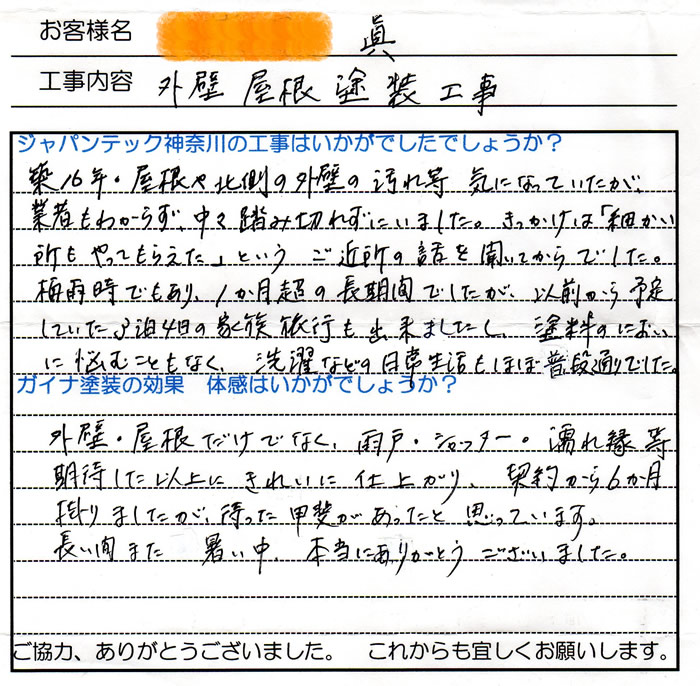 お客様名 眞
工事内容 外壁 屋根 塗装工事
ジャパンテック神奈川の工事はいかがでしたでしょうか？
築16年・屋根や北側の外壁の汚れ等 気になっていたが、
業者もわからず、中々踏み切れずにいました。きっかけは「細かい
所もやってもらえた」という ご近所の話を聞いてからでした。
梅雨時でもあり、1か月超の長期間でしたが、以前から予定
していた3泊4日の家族旅行も出来ましたし、塗料のにおい
に悩むこともなく、洗濯などの日常生活もほぼ普段通りでした。
ガイナ塗装の効果 体感はいかがでしょうか？
外壁・屋根だけでなく、雨戸・シャッター・濡れ縁等
期待した以上にきれいに仕上がり、契約から6か月
掛りましたが、待った甲斐があったと思っています。
長い間また 暑い中、本当にありがとうございました。
ご協力、ありがとうございました。 これからも宜しくお願いします。